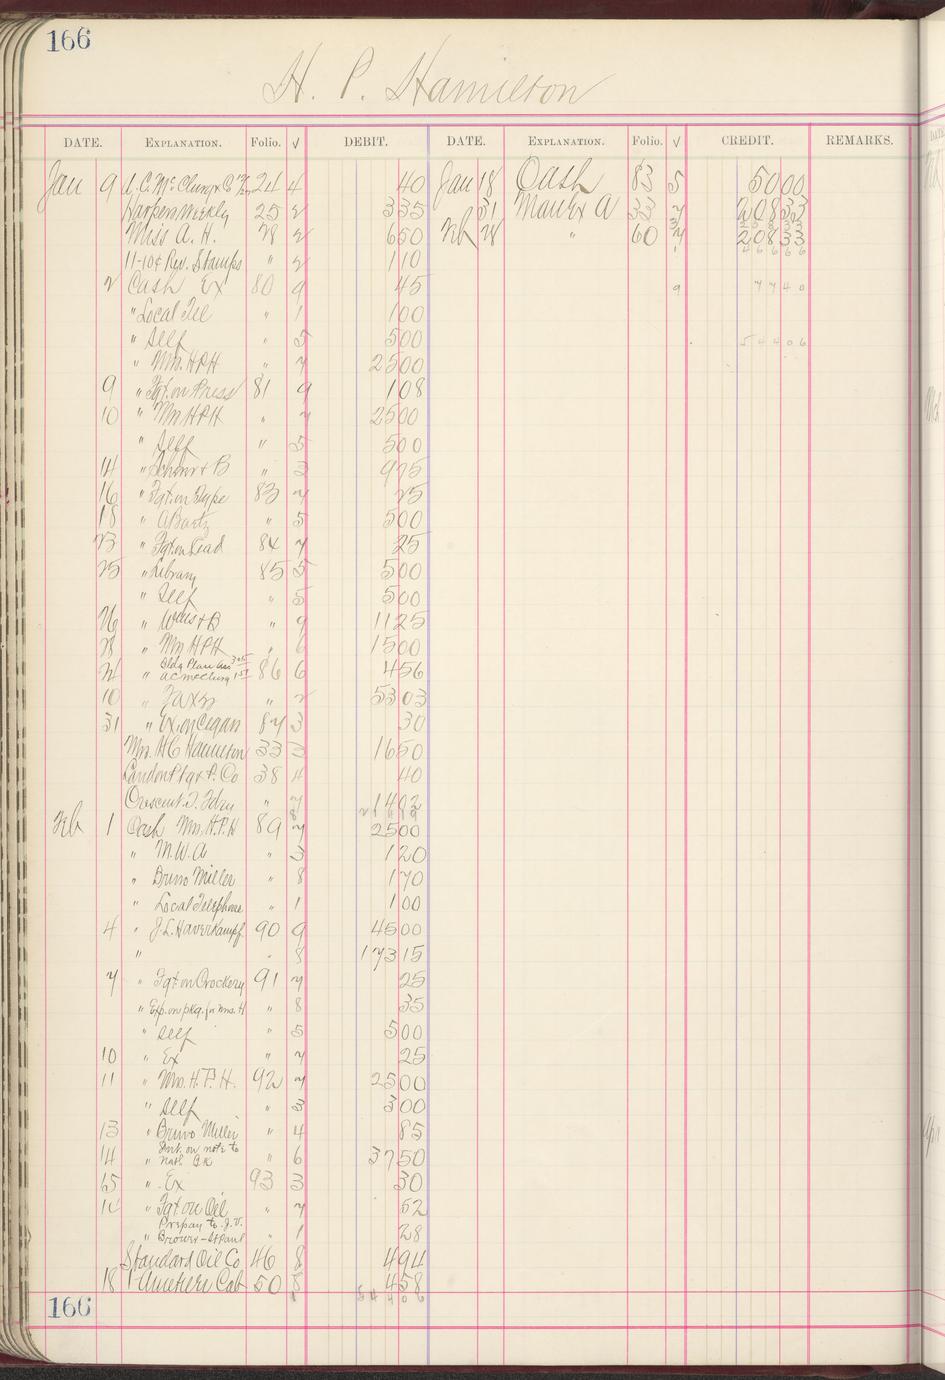 166
H. P. Hamilton
DATE. EXPLANATION. Folio. √ DEBIT. DATE. EXPLANATION. Folio. √ CREDIT. REMARKS.
Jan 9 A. C. McClurg & Co 24 4 40 Jan 18 Cash 83 5 50 00
Harpers Weekly 25 2 3 35 31 Man Ex A 33 7 208 33
Miss A. H. 28 2 6 50 Feb 28 " 60 7 208 33
11-10¢ Rev. Stamps " 2 1 10
2 Cash Ex 80 9 45 9 77 40
" Local Tel " 1 1 00
" Self " 5 5 00 544 06
" Mrs. HPH " 7 25 00
9 " Fgt. on Press 81 9 1 08
10 " Mrs HPH " 7 25 00
" Self " 5 5 00
14 " & B " 3 9 75
16 " Fgt. on Type 83 7 25
18 " A Bartz " 5 5 00
23 " Fgt. on Lead 84 7 25
25 " Library 85 5 5 00
" Self " 5 5 00
26 " & B " 9 11 25
28 " Mrs HPH " 6 15 00
24 " Bldg Plan Ass 3 05 A C McClurg 1 51 86 6 4 56
10 " Taxes " 2 53 03
31 " Ex. on Cigars 87 3 30
Mrs. H C Hamilton 33 3 16 50
Landon P & P. Co 38 4 40
Crescent T. Fdry " 7 14 02
Feb 1 Cash Mrs. H. P. H 89 7 25 00
" M. W. A " 3 1 20
" Bruno Miller " 8 1 70
" Local Telephone " 1 1 00
4 " J. L. Haverkampf 90 9 45 00
" " 8 173 15
7 " Fgt. on Crockery 91 7 25
" Exp. on pkg. for Mrs. H " 8 35
" Self " 5 5 00
10 " Ex " 7 25
11 " Mrs. H. P. H. 92 7 25 00
" Self " 3 3 00
13 " Bruno Miller " 4 85
14 " Int. on note to Natl Bk " 6 37 50
15 " Ex 93 3 30
" Fgt on Oil " 7 52
" Prepay to J. V. Brower - St Paul " 1 28
Standard Oil Co 46 8 4 94
18 Cab 50 8 4 58
544 06
166